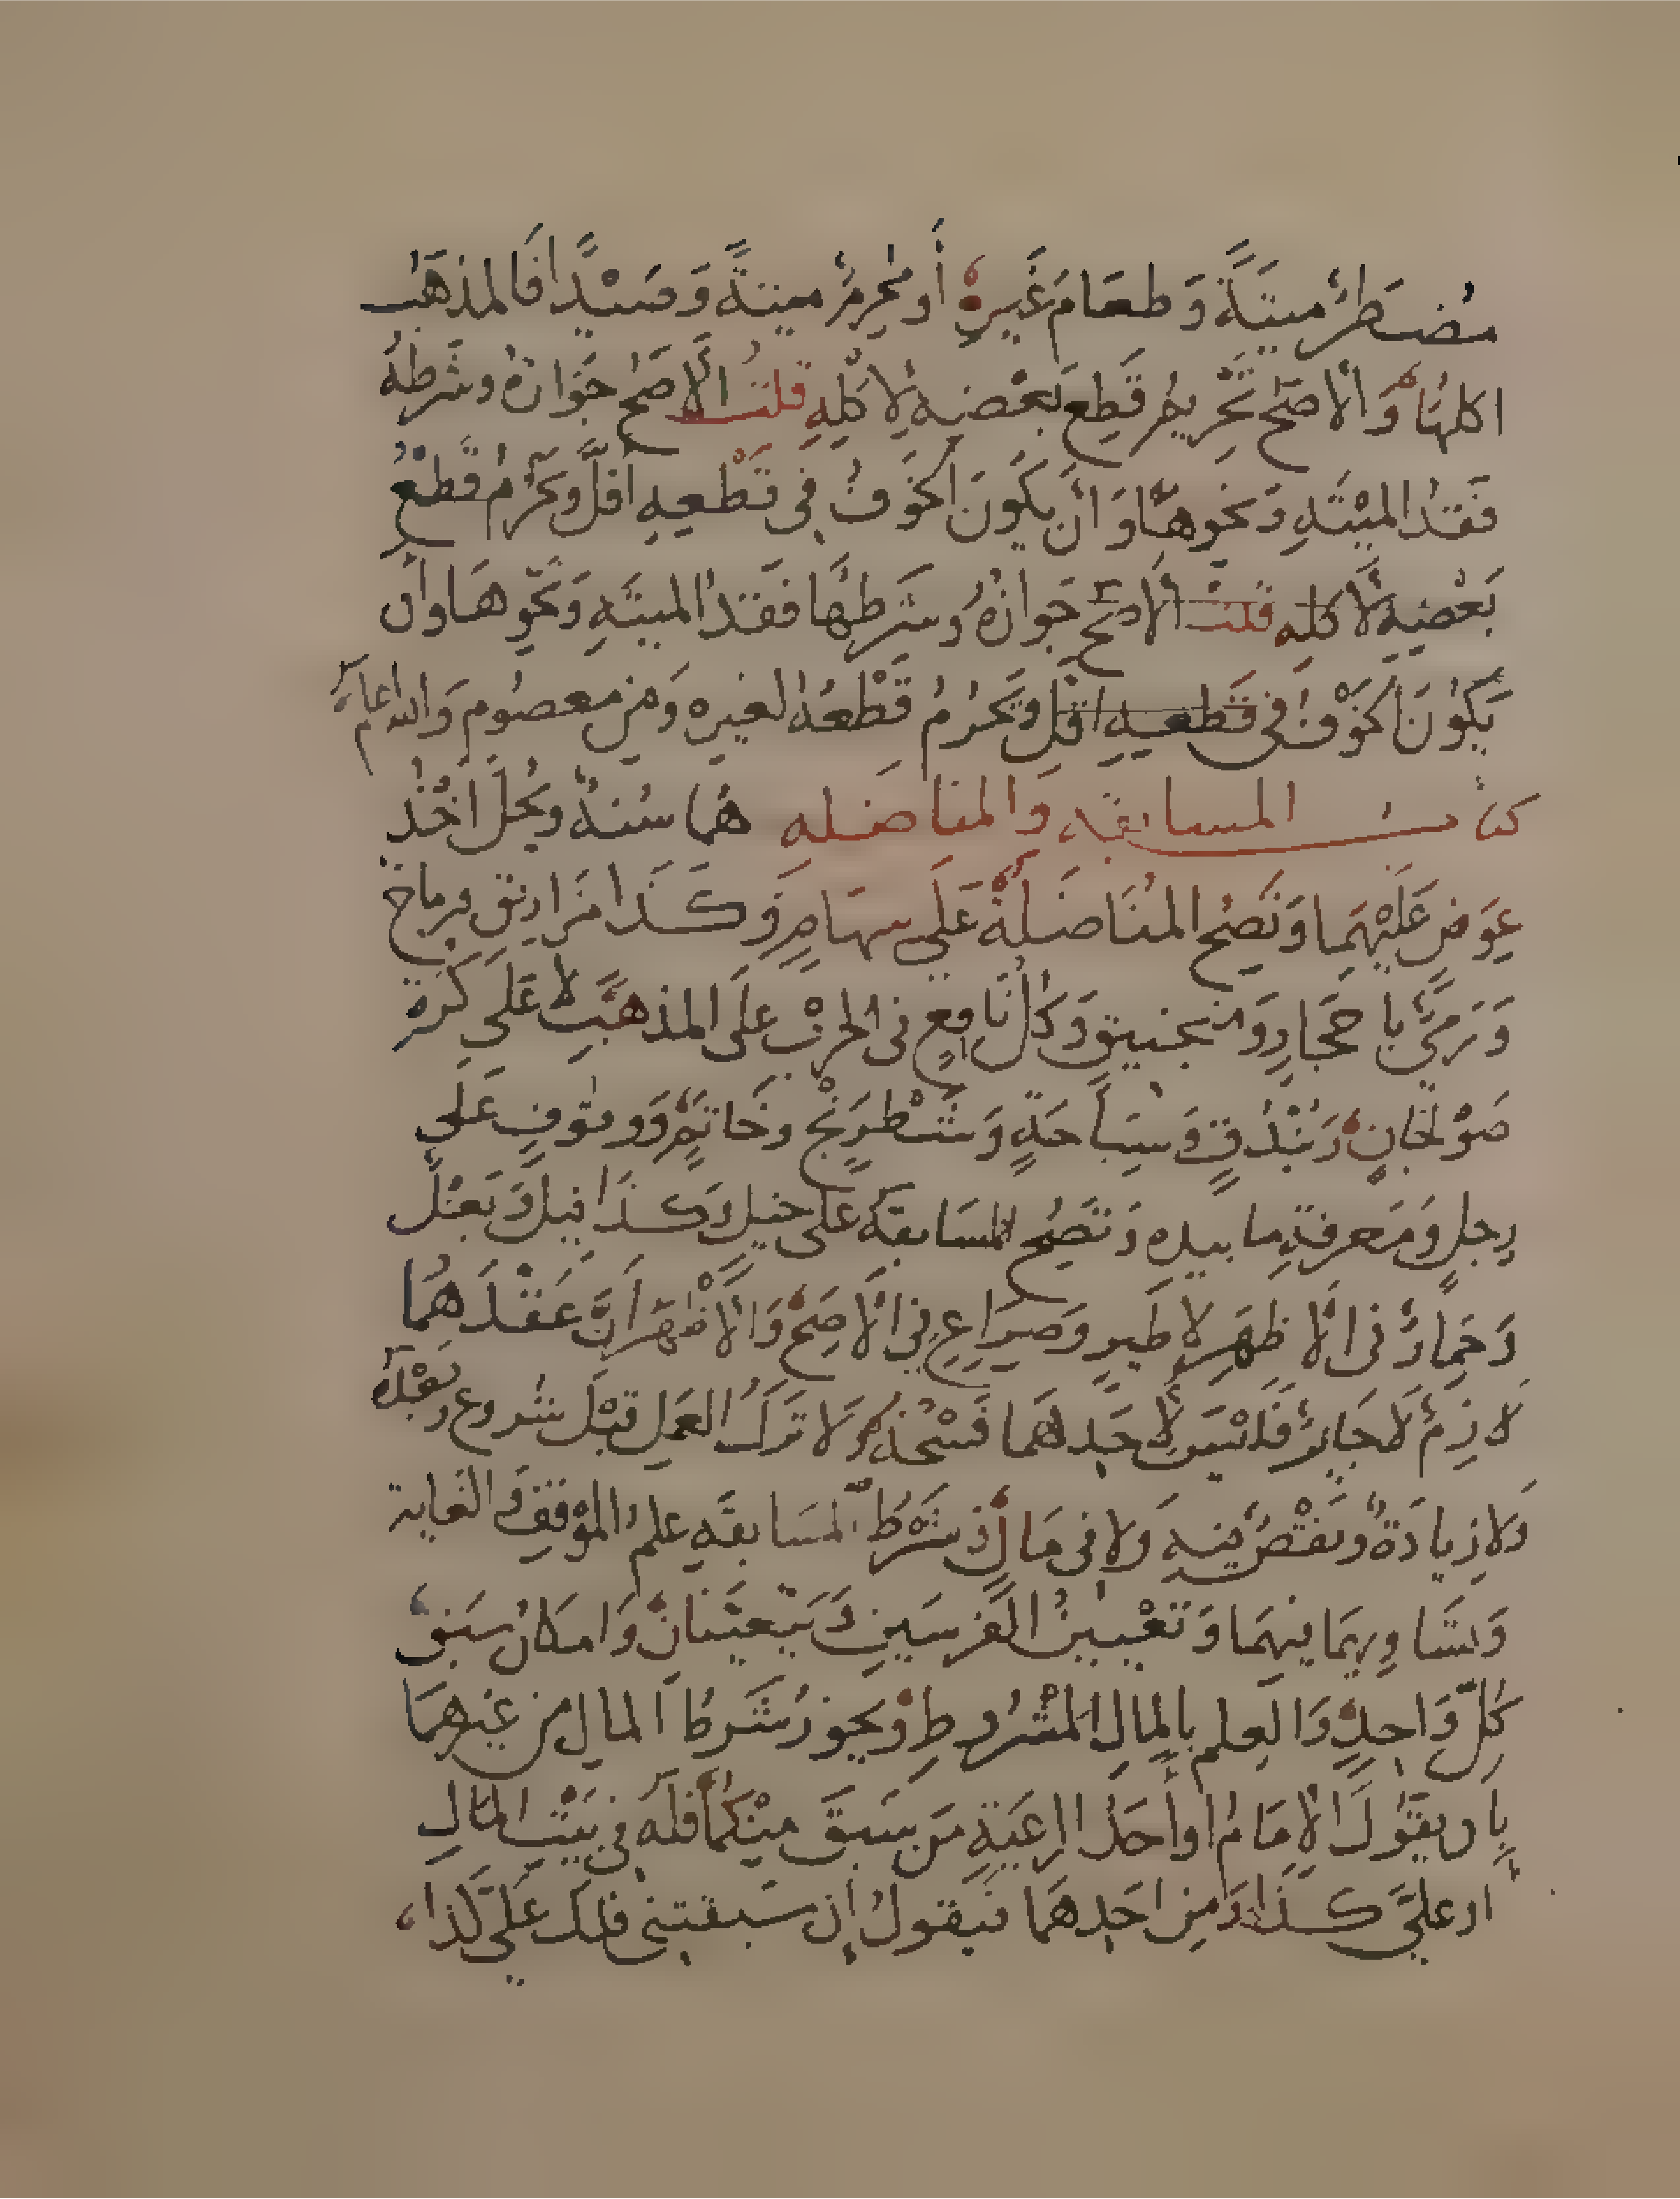 مُضطَرٌّ مَيتَةً وَطعَامَ غَيرِهِ أو مُحْرِمٌ ميتةً وَصَيْدًا فَالمذهَبُ
اكلهَا وَالاصَحُّ تَحْرِيمُ قَطعِ بَعْضِهِ لاَكلِهِ قلتُ الاَصَحُّ جَوَازهُ وشَرطهُ
فَقدُ المَيْتَةِ وَنَحْوِهَا وَانْ يَكُونَ الخَوفُ فِى قَطْعِهِ اقلَّ وَيَحْرُمُ قَطْعُ
بَعْضِهِ لاَكلِهِ قلتُ الاَصَحُّ جَوَازهُ وَشَرطهَا فَقدُ الميتَةِ وَنَحْوِهَا وان
يَكُونَ الخَوْفُ فِى قَطعِهِ اقلَّ وَيَحرُمُ قَطْعُهُ لغيرِهِ وَمن معصُوم وَالله اعلم
كتاب المسابقة وَالمناضله هُمَا سُنةٌ وَيَحلُّ اخْذُ
عِوَضٍ عَلَيْهِمَا وَتَصِحُّ المُنَاضَلَةُ عَلَى سهَامٍ وَكَذَا مَزَارِيقَ وَرِمَاح
وَرَمْىٍ باحجَارٍ وَمَنجنيقٍ وَكُلِّ نَافِعٍ فى الحرْبِ عَلَى المذهَبِ لا عَلَى كرَةِ
صَوْلجَانٍ وَبُنْدُقٍ وَسِبَاحَةٍ وَشَطْرَنْجٍ وخَاتمٍ وَوقوفٍ عَلَى
رِجلٍ وَمَعرفةِ مَا بيدِهِ وَتَصِحُّ المسَابقَةُ عَلى خيلٍ وَكَذَا فيلٌ وَبَغْلٌ
وَحمَارٌ فى الاَظهَرِ لا طَيرٍ وَصِرَاعٍ فِى الاَصَحِّ وَالاَظْهَرُ اَنَّ عَقْدَهُمَا
لاَزِمٌ لاَ جَائزٌ فَلَيْسَ لاَحَدِهمَا فَسْخُهُ وَلا تَركُ العَمَلِ قَبْلَ شُروعٍ وَبَعْدَهُ
وَلا زِيَادَةٌ وَنَقْصٌ فِيهِ وَلا فى مَالٍ وَشَرْطُ المسَابقَةِ علمُ المَوْقفِ وَالغَاية
وَتسَاوِيهِمَا فيهِمَا وَتَعْيِينُ الفَرسَينِ وَيَتَعَيَّنانِ وَامكَانُ سَبقِ
كُلِّ وَاحِدٍ وَالعِلم بالمالِ المشْرُوطِ وَيجوزُ شَرطُ المالِ من غَيْرِهمَا
بِان يَقُولَ الاِمَامُ اَو اَحَدُ الرعِيَّةِ مَن سَبَقَ مِنْكُمَا فلهُ فى بَيْتِ المَالِ
او علىَّ كَذَا وَمِن احَدِهمَا فَيَقولُ إن سَبقتنى فلكَ عَلىَّ كَذا،